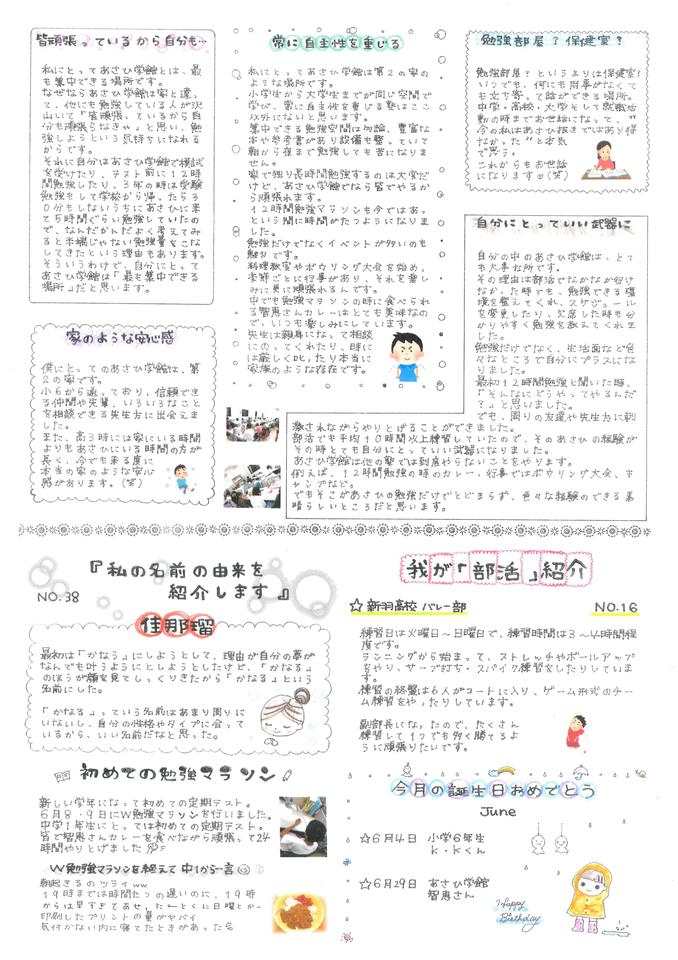 皆頑張っているから自分も…
私にとってあさひ学館とは、最
も集中できる場所です。
なぜならあさひ学館は家と違っ
て、他にも勉強している人が沢
山いて『皆頑張っているから自
分も頑張らなきゃ』と思い、勉
強しようという気持ちになれる
からです。
それに自分はあさひ学館で模試
を受けたり、テスト前に12時
間勉強したり、3年の時は受験
勉強もして学校から帰ったら3
0分もしないうちにあさひに来
て5時間ぐらい勉強していたの
で、なんだかんだよく考えてみ
ると半端じゃない勉強量をこな
してきたという理由もあります。
そういうわけで、自分にとって
あさひ学館は「最も集中できる
場所」だと思います。
家のような安心感
僕にとってのあさひ学館は、第
2の家です。
小6から通っており、信頼でき
る仲間や先輩、いろいろなこと
を相談できる先生方に出会えま
した。
また、高3時には家にいる時間
よりもあさひにいる時間の方が
長く、今でも来る度に
本当の家のような安心
感があります。(笑)
常に自主性を重じる
私にとってあさひ学館は第2の家の
ような場所です。
小学生から大学生までが同じ空間で
学び、常に自主性を重じる塾はここ
以外にないと思います。
集中できる勉強空間は勿論、豊富な
本や参考書があり設備も整っていて
朝から夜まで勉強しても苦になりま
せん。
家で独り長時間勉強するのは大変だ
けど、あさひ学館でなら皆でやるか
ら頑張れます。
12時間勉強マラソンも今ではあっ
という間に時間がたつようになりま
した。
勉強だけでなくイベントが多いのも
魅力です。
料理教室やボウリング大会を始め、
季節ごとに行事があり、それを楽し
みに更に頑張れるんです。
中でも勉強マラソンの時に食べられ
る智恵さんカレーはとても美味なの
で、いつも楽しみにしています。
先生は親身になって相談
にのってくれたり、時に
は厳しく叱ったり本当に
家族のような存在です。
勉強部屋?保健室?
勉強部屋?というよりは保健室!
いつでも、何にも用事がなくて
も立ち寄って話ができる場所。
中学・高校・大学そして就職活
動の時までお世話になって、"
今の私はあさひ抜きではあり得
なかった"と本気
で思う。
これからもお世話
になります☺(笑)
自分にとっていい武器に
自分の中のあさひ学館は、とて
も大事な所です。
その理由は部活でなかなか行け
なかった時でも、勉強できる環
境を整えてくれ、スケジュール
を変更したり、欠席した時も分
かりやすく勉強を教えてくれま
した。
勉強だけでなく、生活面など色
々なところで自分にプラスにな
りました。
最初12時間勉強と聞いた時、
「そんなにどうやってやるんだ
?」と思いました。
でも、周りの友達や先生方に刺
激されながらやりとげることができました。
部活でも平均10時間以上練習していたので、そのあさひの経験が
その時とても自分にとっていい武器になりました。
あさひ学館は他の塾では到底やらないことをやります。
例えば、12時間勉強の時のカレー、行事ではボウリング大会、キ
ャンプなど。
でもそこがあさひの勉強だけでとどまらず、色々な経験のできる素
晴らしいところだと思います。
『私の名前の由来を
紹介します』
NO.38
佳那瑠
最初は「かなう」にしようとして、理由が自分の夢が
なんでも叶うようにとしようとしたけど、「かなる」
のほうが顔を見てしっくりきたから「かなる」という
名前にした。
「かなる」っていう名前はあまり周りに
いないし、自分の性格やタイプに合って
いるから、いい名前だなと思った。
初めての勉強マラソン
新しい学年になって初めての定期テスト。
6月8・9日にW勉強マラソンを行いました。
中学1年生にとっては初めての定期テスト。
皆で智恵さんカレーを食べながら頑張って24
時間やりとげました
W勉強マラソンを終えて 中1から一言
朝起きるのツライww
19時までは時間たつの遅いのに、19時
からは早すぎてあせった-とくに日曜とか-
印刷したプリントの量がヤバイ
気付かない内に寝てたときがあった
我が「部活」紹介
☆新羽高校 バレー部
NO.16
練習日は火曜日~日曜日で、練習時間は3~4時間程
度です。
ランニングから始まって、ストレッチやボールアップ
をやり、サーブ打ち・スパイク練習をしたりしていま
す。
練習の終盤は6人がコートに入り、ゲーム形式のチー
ム練習をやったりしています。
副部長になったので、たくさん
練習して1つでも多く勝てるよ
うに頑張りたいです。
今月の誕生日おめでとう
June
☆6月4日 小学6年生
K・Kくん
☆6月29日 あさひ学館
智恵さん
Happy
Birthday